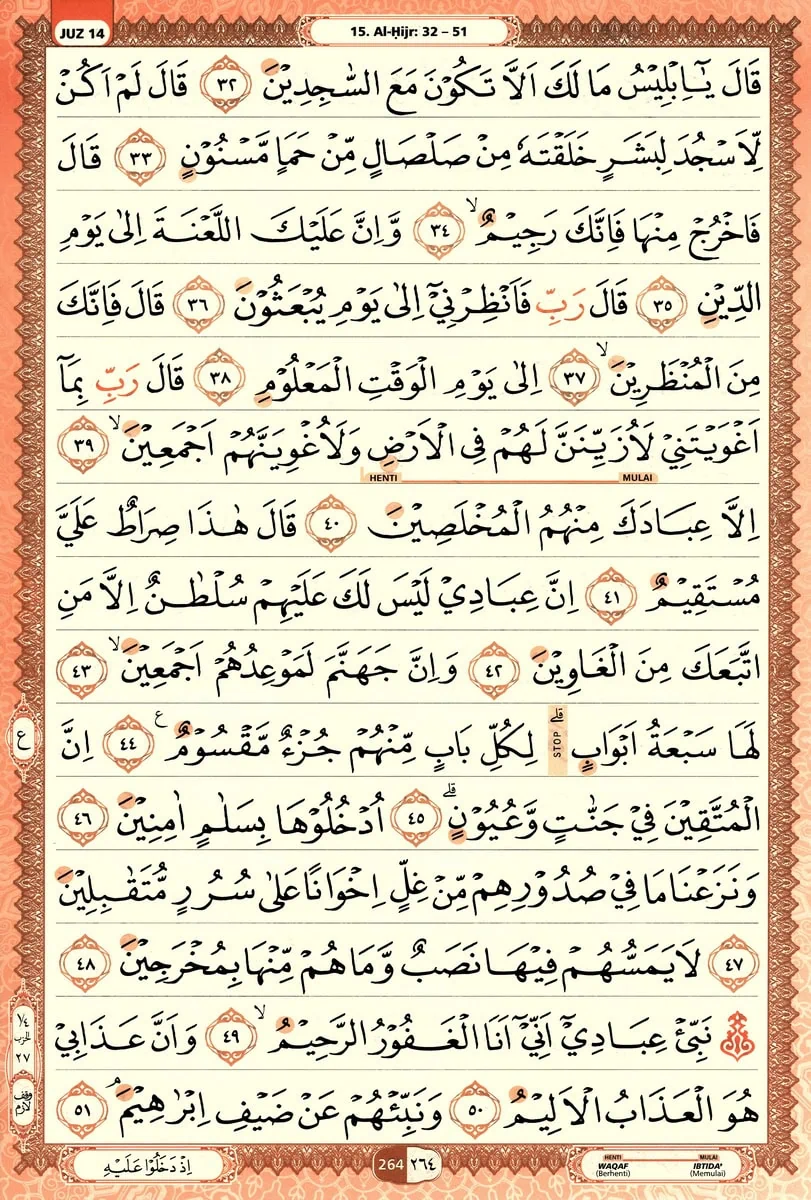 JUZ 14
15. Al-Ḥijr: 32 – 51
قَالَ يٰٓاِبْلِيْسُ مَا لَكَ اَلَّا تَكُوْنَ مَعَ السّٰجِدِيْنَ ٣٢ قَالَ لَمْ اَكُنْ
لِّاَسْجُدَ لِبَشَرٍ خَلَقْتَهٗ مِنْ صَلْصَالٍ مِّنْ حَمَاٍ مَّسْنُوْنٍ ٣٣ قَالَ
فَاخْرُجْ مِنْهَا فَاِنَّكَ رَجِيْمٌۙ ٣٤ وَّاِنَّ عَلَيْكَ اللَّعْنَةَ اِلٰى يَوْمِ
الدِّيْنِ ٣٥ قَالَ رَبِّ فَاَنْظِرْنِيْٓ اِلٰى يَوْمِ يُبْعَثُوْنَ ٣٦ قَالَ فَاِنَّكَ
مِنَ الْمُنْظَرِيْنَۙ ٣٧ اِلٰى يَوْمِ الْوَقْتِ الْمَعْلُوْمِ ٣٨ قَالَ رَبِّ بِمَآ
اَغْوَيْتَنِيْ لَاُزَيِّنَنَّ لَهُمْ فِى الْاَرْضِ وَلَاُغْوِيَنَّهُمْ اَجْمَعِيْنَۙ ٣٩
HENTI MULAI
اِلَّا عِبَادَكَ مِنْهُمُ الْمُخْلَصِيْنَ ٤٠ قَالَ هٰذَا صِرَاطٌ عَلَيَّ
مُسْتَقِيْمٌ ٤١ اِنَّ عِبَادِيْ لَيْسَ لَكَ عَلَيْهِمْ سُلْطٰنٌ اِلَّا مَنِ
اتَّبَعَكَ مِنَ الْغَاوِيْنَ ٤٢ وَاِنَّ جَهَنَّمَ لَمَوْعِدُهُمْ اَجْمَعِيْنَۙ ٤٣
لَهَا سَبْعَةُ اَبْوَابٍۗ STOP لِكُلِّ بَابٍ مِّنْهُمْ جُزْءٌ مَّقْسُوْمٌ ࣖ ٤٤ اِنَّ
ع
الْمُتَّقِيْنَ فِيْ جَنّٰتٍ وَّعُيُوْنٍۗ ٤٥ اُدْخُلُوْهَا بِسَلٰمٍ اٰمِنِيْنَ ٤٦
وَنَزَعْنَا مَا فِيْ صُدُوْرِهِمْ مِّنْ غِلٍّ اِخْوَانًا عَلٰى سُرُرٍ مُّتَقٰبِلِيْنَ
٤٧ لَا يَمَسُّهُمْ فِيْهَا نَصَبٌ وَّمَا هُمْ مِّنْهَا بِمُخْرَجِيْنَ ٤٨
۞ نَبِّئْ عِبَادِيْٓ اَنِّيْٓ اَنَا الْغَفُوْرُ الرَّحِيْمُۙ ٤٩ وَاَنَّ عَذَابِيْ
١/٤
الحزب
٢٧
هُوَ الْعَذَابُ الْاَلِيْمُ ٥٠ وَنَبِّئْهُمْ عَنْ ضَيْفِ اِبْرٰهِيْمَۘ ٥١
وقف
لازم
اِذْ دَخَلُوْا عَلَيْهِ
264 ٢٦٤
HENTI MULAI
WAQAF IBTIDA'
(Berhenti) (Memulai)